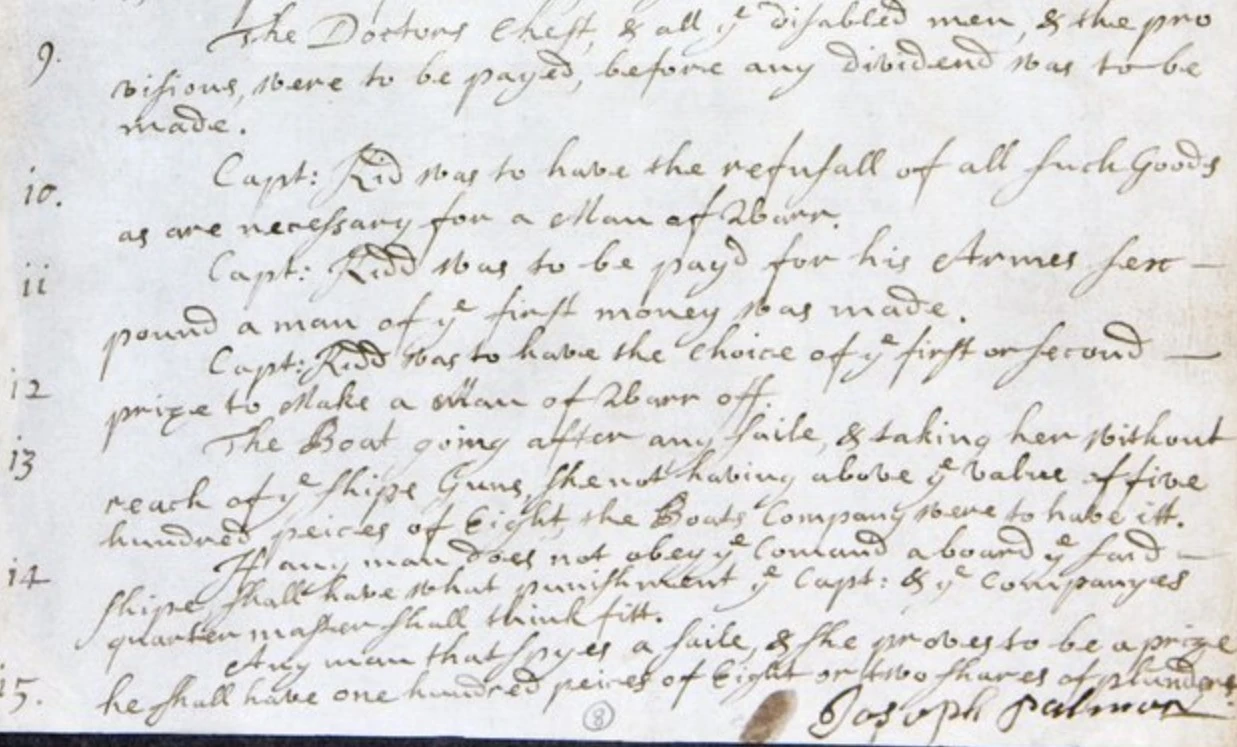 9. The Doctors Chest, & all yᵉ disabled men, & the pro
visions, were to be payed, before any dividend was to be
made.
10. Capt: Kid was to have the refusall of all such Goods
as are necessary for a Man of Warr.
11 Capt: Kidd was to be payd for his Armes sex —
pound a man of yᵉ first money was made.
12 Capt: Kidd was to have the Choice of yᵉ first or second —
prize to Make a Man of Warr off.
13 The Boat going after any saile, & taking her without
reach of yᵉ ships Guns, she not having above yᵉ value of five
hundred peices of Eight, the Boats Company were to have itt.
14 If any man does not obey yᵉ Comand aboard yᵉ said —
shipe, shall have what punishment yᵉ Capt: & yᵉ Companyes
quarter master shall think fitt.
15. Any man that spyes a saile, & she proves to be a prize
he shall have one hundred peices of Eight or two shares of plunder.
Joseph Palmer
8